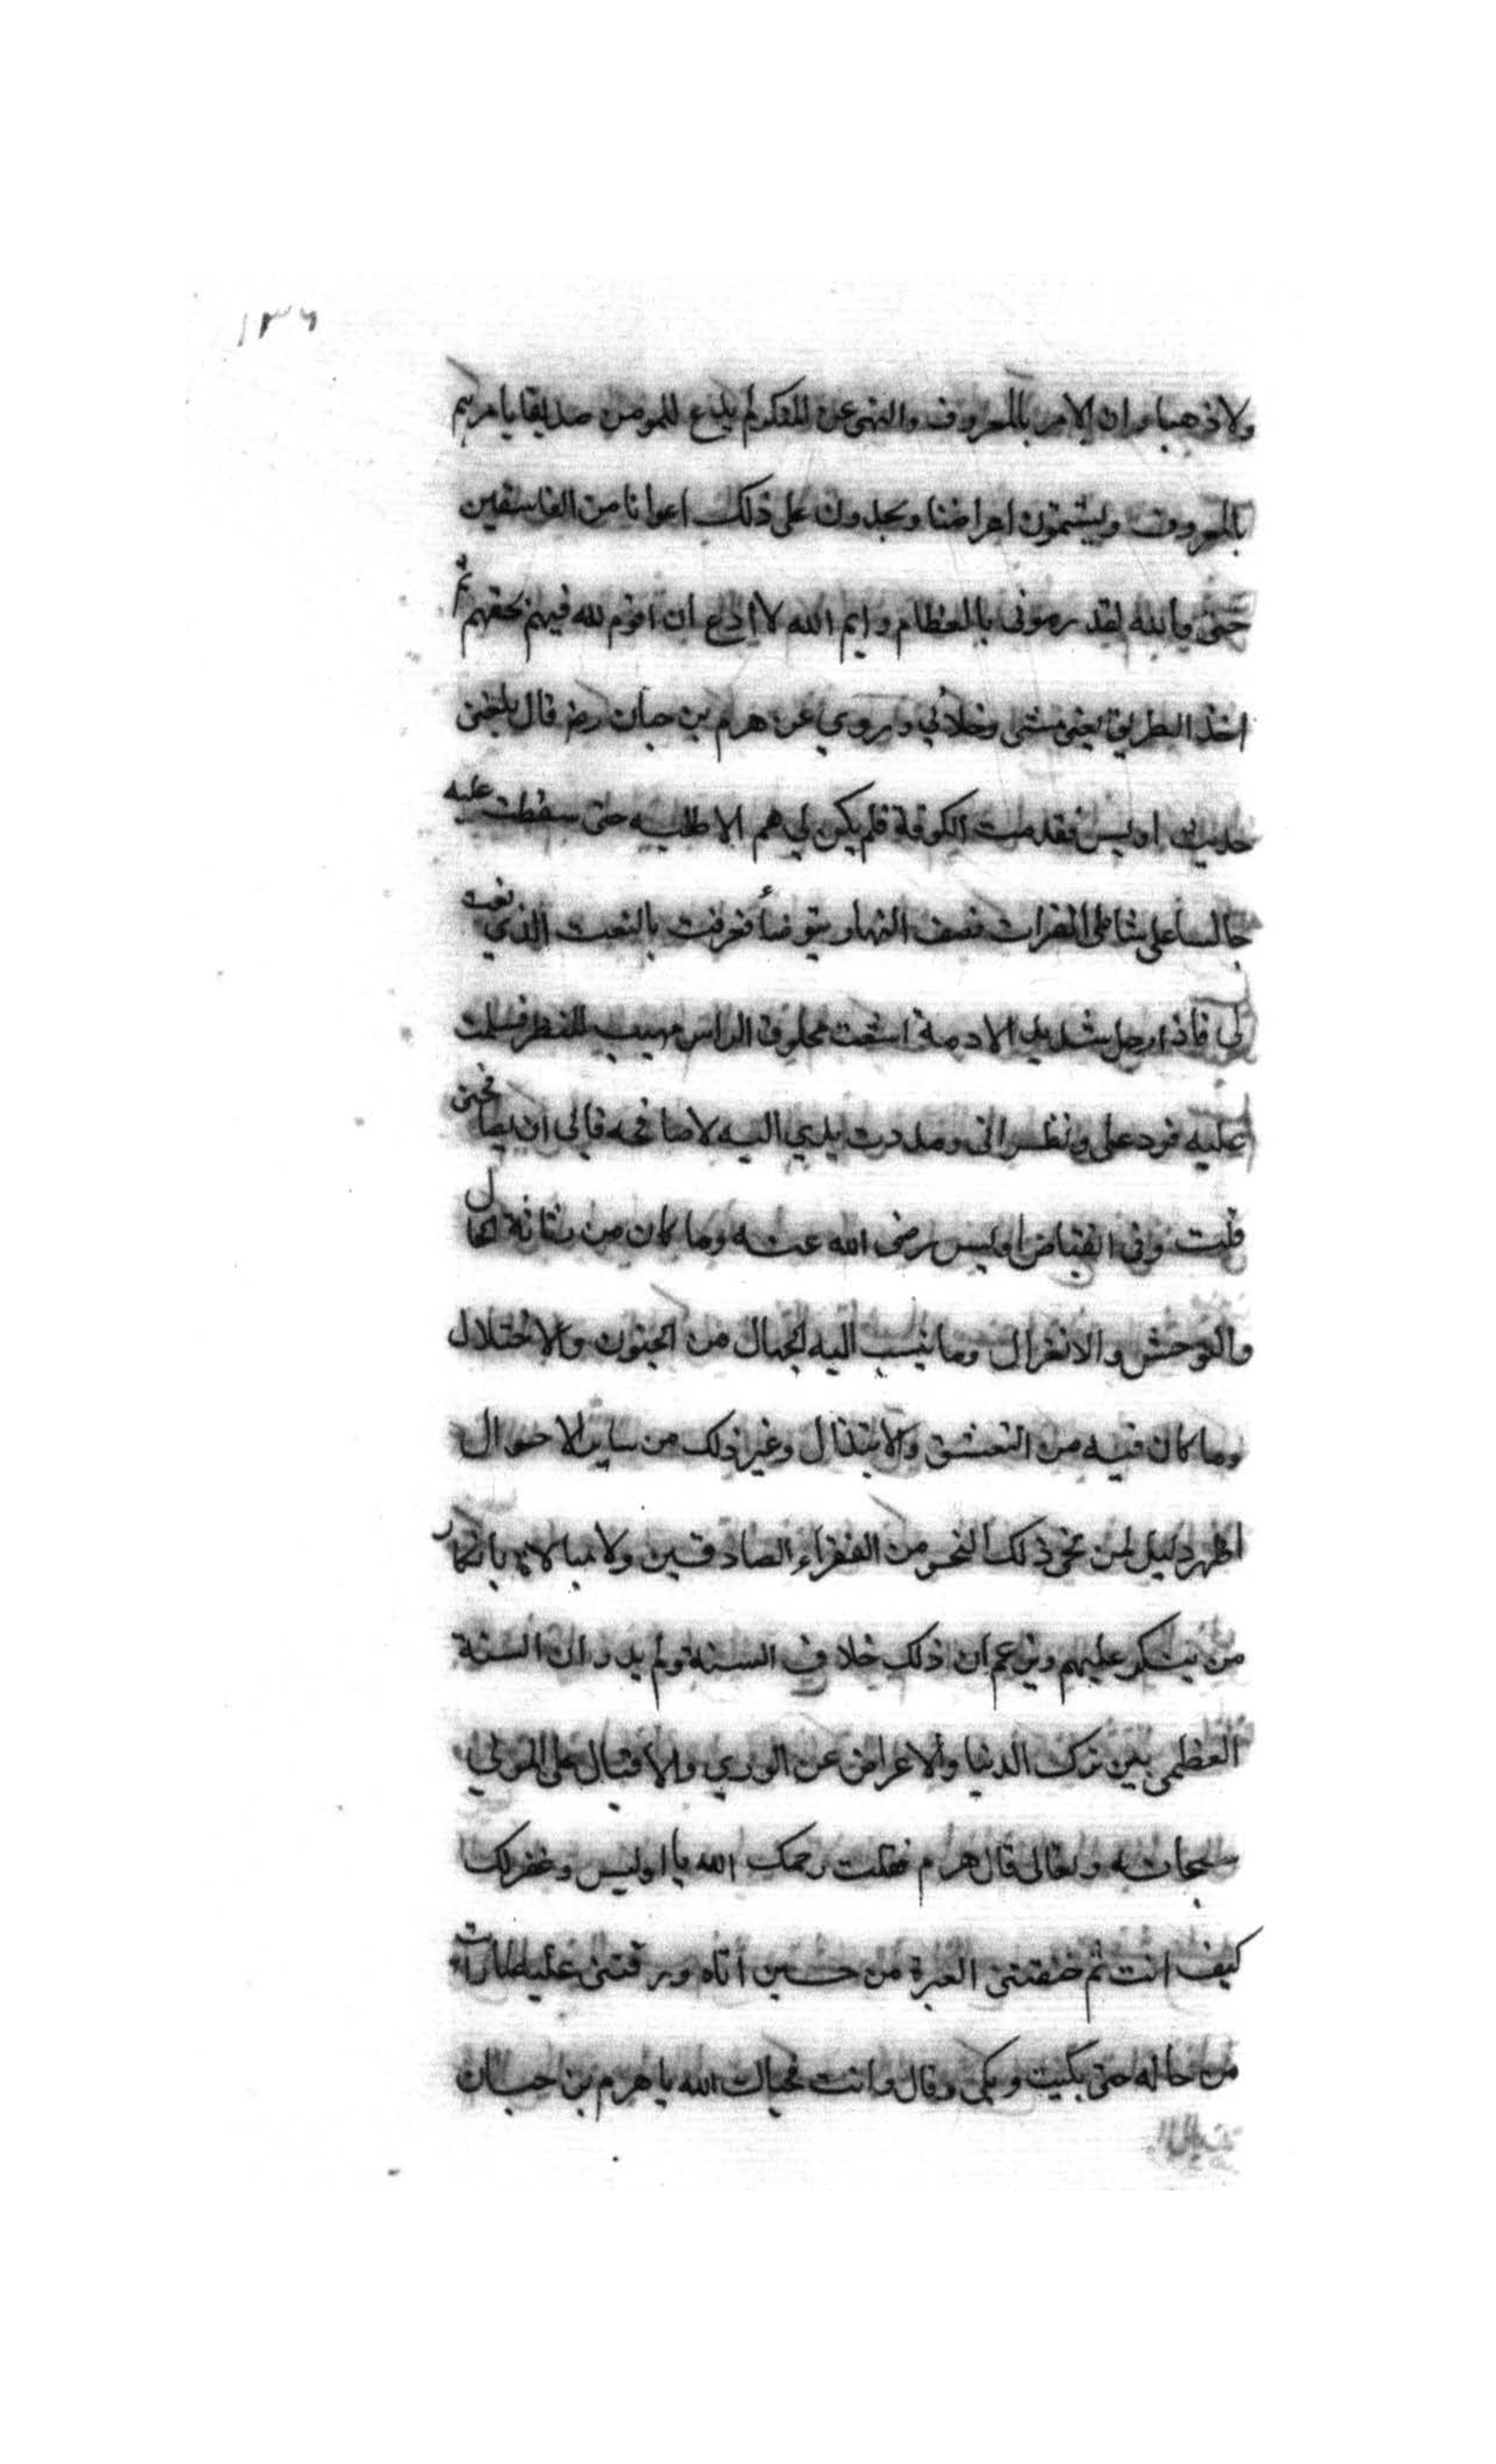 ١٣٦
ولا ذهبا وان الامر بالمعروف والنهى عن المنكر لم يدع للمومن صديقا نامرهم
بالمعروف ويشتمون اعراضنا ويجدون على ذلك اعوانا من الفاسقين
حتى والله لقد رمونى بالعظام وايم الله لا ادع ان اقوم لله فيهم بحقهم ثم
اخذ الطريق يعنى مشى وخلاني ويروي عن هرم بن حبان رضه قال بلغنى
حديث اويس فقدمت الكوفة فلم يكن لي هم الا طلبه حتى سقطت عليه
جالسا على شاطى الفرات نصف النهار يتوضأ فعرفت بالنعت الذي نعت
لي فاذا رجل شديد الادمة اشعث محلوق الراس مهيب المنظر فسلمت
عليه فرد على ونظر الى ومددت يدي اليه لاصافحه فابى ان يصافحنى
قلت وفى انقباض اويس رضى الله عنه وما كان من رثاثة الحال
والتوحش والانعزال وما ينسب اليه الجهال من الجنون والاختلال
وما كان فيه من التعشق والابتذال وغير ذلك من ساير الاحوال
اظهر دليل لمن نحى ذلك النحو من الفقراء الصادقين ولا مبالاة بانكار
من ينكر عليهم ويزعم ان ذلك خلاف السنة ولم يدر ان السنة
العظمى بين ترك الدنيا والاعراض عن الوري والاقبال على المولي
سبحانه وتعالى قال هرم فقلت رحمك الله يا اويس وغفر لك
كيف انت ثم خنقتنى العبرة من حسين اتاه ورقتى عليه لما رات
من حاله حتى بكيت وبكى وقال وانت فحياك الله يا هرم بن حبان